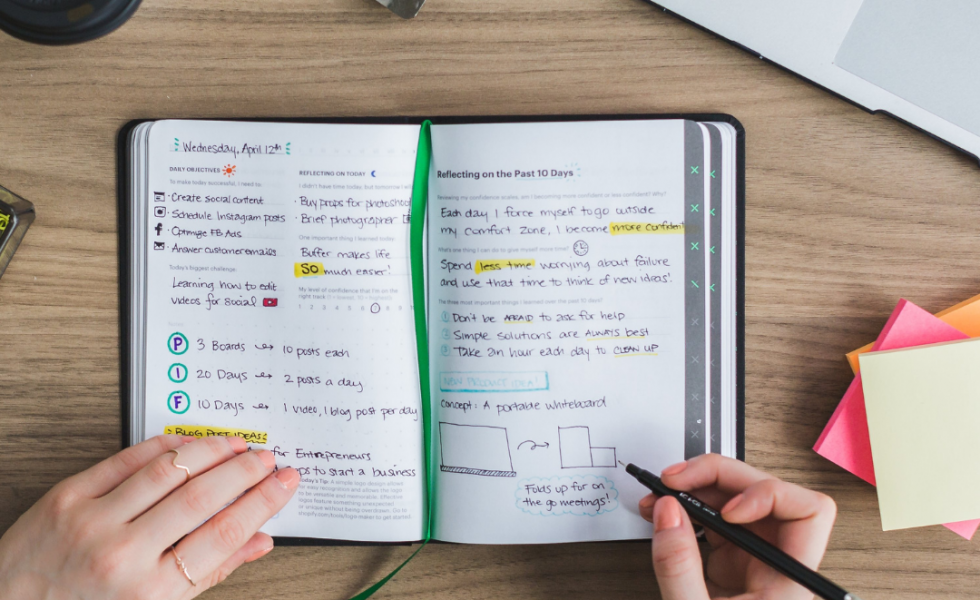 Wednesday, April 12th
DAILY OBJECTIVES
To make today successful, I need to
· Create social content
· Schedule Instagram posts
· Optmize FB Ads
· Answer customer emails
Today's biggest challenge
Learning how to edit
videos for social
REFLECTING ON TODAY
I didn't have time today, but tomorrow I will
· Buy props for photoshoot
· Brief photographer
One important thing I learned today
Buffer makes life
SO much easier!
My level of confidence that I'm on the
right track (1 = lowest, 10 = highest)
1 2 3 4 5 6 7 8 9
P 3 Boards → 10 posts each
I 20 Days → 2 posts a day
F 10 Days → 1 video, 1 blog post per day
BLOG POST IDEAS:
for Entrepreneurs
ps to start a business
Today's Tip: A simple logo design allows
for easy recognition and allows the logo
to be versatile and memorable. Effective
logos feature something unexpected
or unique without being overdrawn. Go to
to get started
Reflecting on the Past 10 Days
Reviewing my confidence scores, am I becoming more confident or less confident? Why?
Each day I force myself to go outside
my comfort zone, I become more confident
What's one thing I can do to give myself more time?
Spend less time worrying about failure
and use that time to think of new ideas!
The three most important things I learned over the past 10 days?
1 Don't be AFRAID to ask for help
2 Simple solutions are ALWAYS best
3 Take an hour each day to CLEAN UP
NEW PRODUCT IDEA!
Concept: A portable whiteboard
Folds up for on
the go meetings!